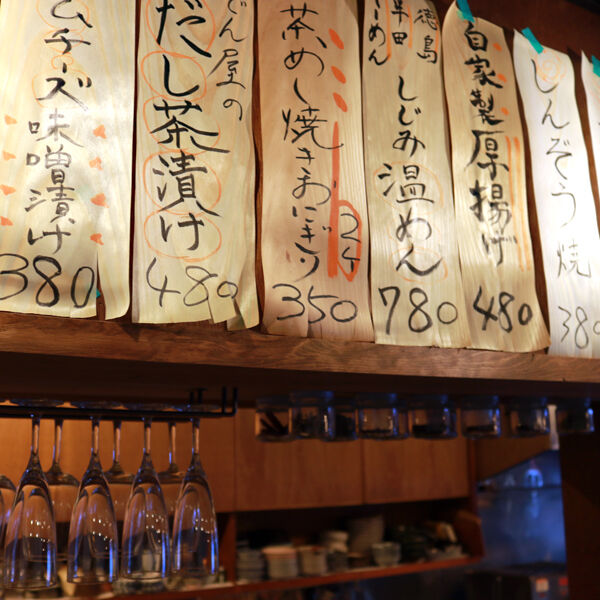 ムチーズ
味噌漬け
380
でん屋の
だし茶漬け
480
茶めし焼きおにぎり
2ケ
350
徳島
半田
そーめん
しじみ温めん
780
自家製
厚揚げ
480
しんぞう焼
380